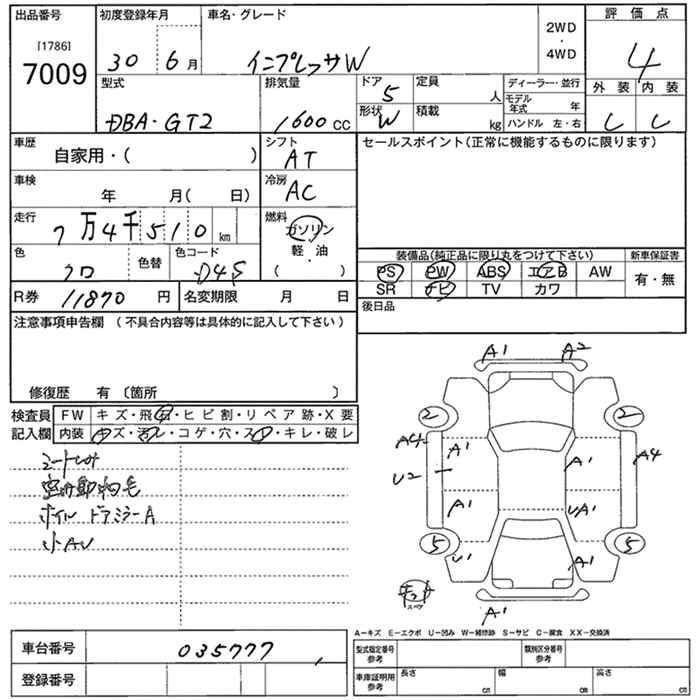 出品番号 初度登録年月 車名・グレード 2WD・4WD 評価点
[1786] 7009 30 6月 インプレッサW 4
型式 排気量 ドア 5 定員 人 ディーラー・並行 外装 内装
DBA・GT2 1600cc 形状 W 積載 kg モデル年式 年 C C
ハンドル 左・右
車歴 シフト セールスポイント(正常に機能するものに限ります)
自家用・( ) AT
車検 冷房
年 月( 日) AC
走行 燃料
7万4千510km ガソリン
軽・油
( )
色 色替 色コード 装備品(純正品に限り丸をつけて下さい) 新車保証書
クロ D4S PS PW ABS エアB AW 有・無
R券 11870円 名変期限 月 日 SR ナビ TV カワ
後日品
注意事項申告欄 (不具合内容等は具体的に記入して下さい)
修復歴 有 〔箇所 〕
検査員 FW キズ・飛石・ヒビ割・リペア跡・X要
記入欄 内装 キズ・汚レ・コゲ・穴・スレ・キレ・破レ
シートしみ
室内動物毛
ホイル ドアミラーA
小AU
A1 A2
2 2
A4 A1 A1 A4
U2
A1 UA1
5 5
U1 A1
キット
スペア
A1
A-キズ E-エクボ U-凹み W-補修跡 S-サビ C-腐食 XX-交換済
車台番号 035777 型式指定番号 参考 類別区分番号 参考
登録番号 車庫証明用 参考 長さ cm 幅 cm 高さ cm